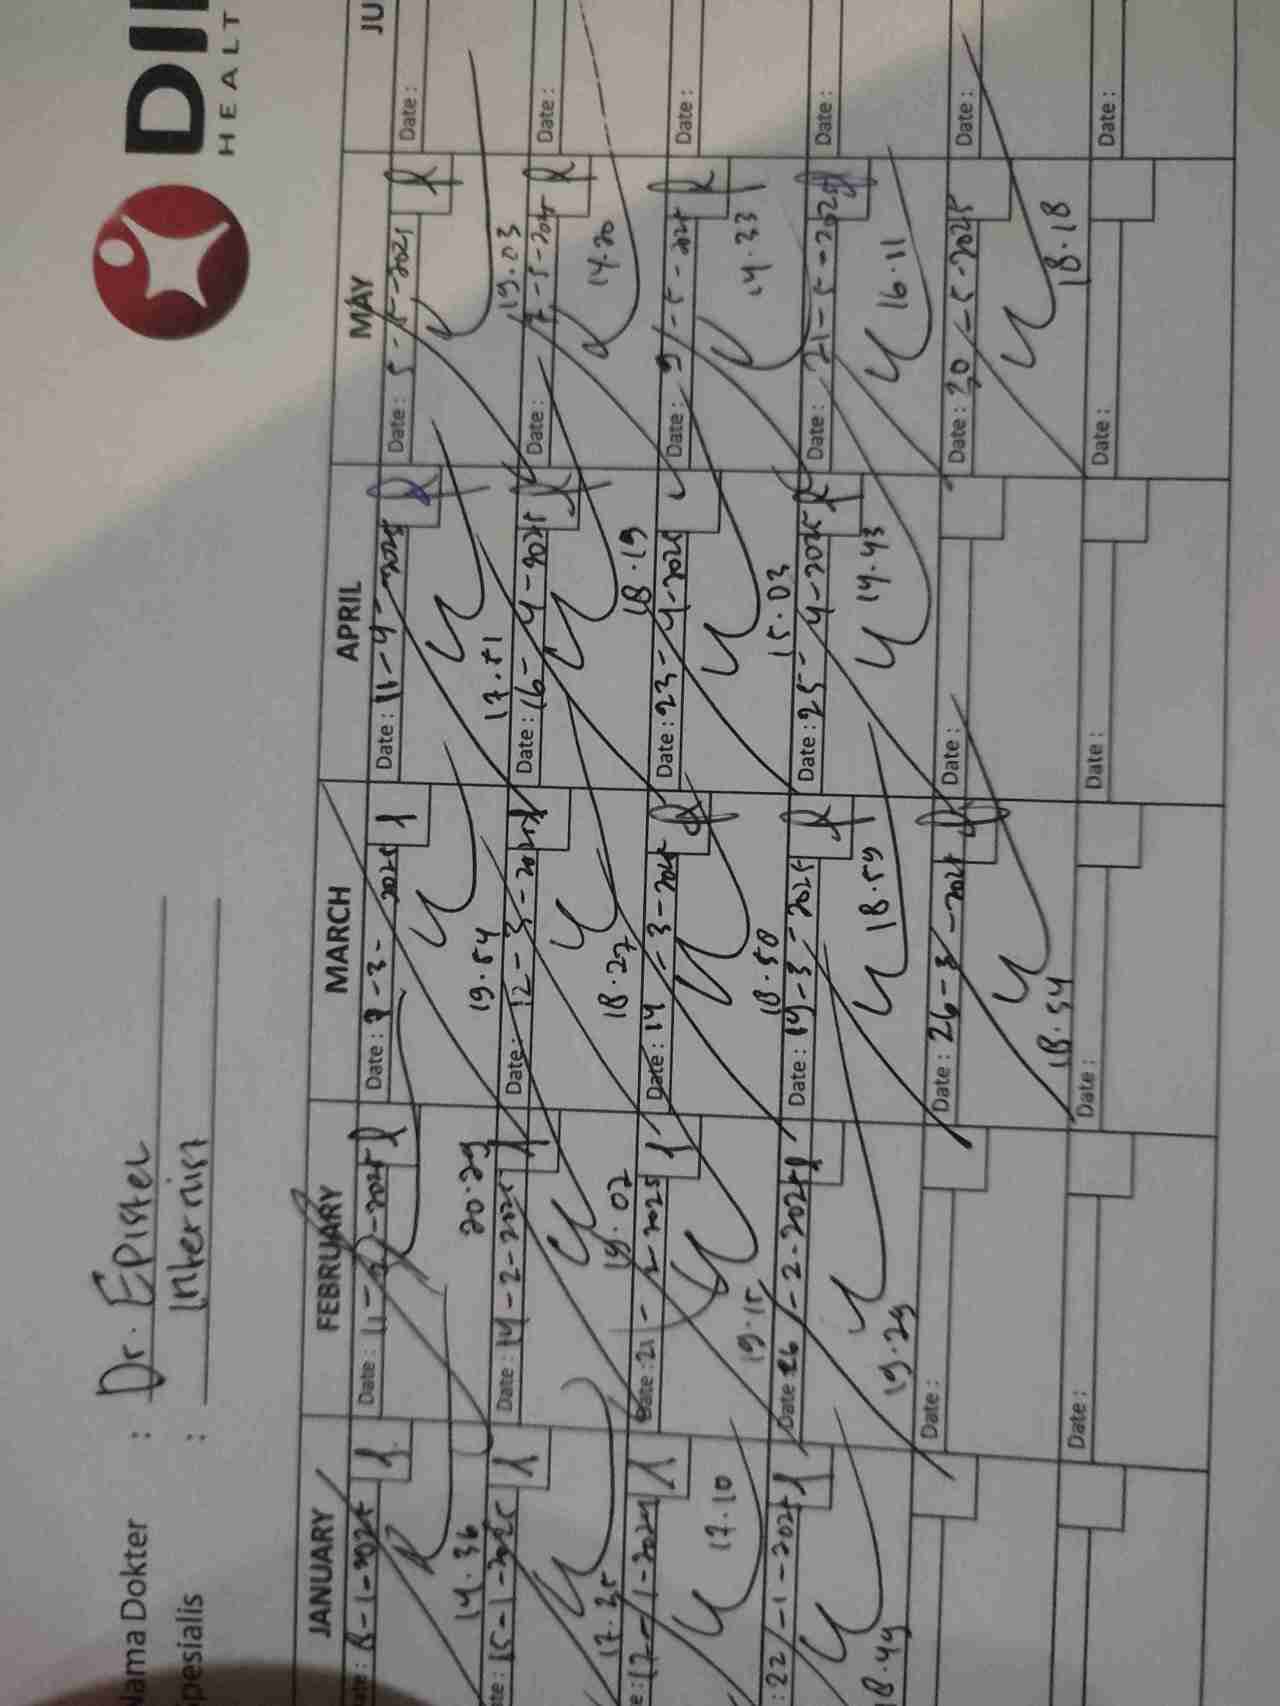 DI
HEALT
Nama Dokter : Dr. Epistel
Spesialis : Internist
JANUARY FEBRUARY MARCH APRIL MAY JU
Date: 8-1-2025 Date: 11-2-2025 Date: 7-3-2025 Date: 11-4-2025 Date: 5-5-2025 Date:
14.36 20.29 19.54 17.51 19.03
Date: 15-1-2025 Date: 14-2-2025 Date: 12-3-2025 Date: 16-4-2025 Date: 7-5-2025 Date:
17.35 19.02 18.27 18.19 14.20
Date: 17-1-2025 Date: 21-2-2025 Date: 14-3-2025 Date: 23-4-2025 Date: 9-5-2025 Date:
17.10 19.15 18.50 15.03 14.33
: 22-1-2025 Date: 26-2-2025 Date: 19-3-2025 Date: 25-4-2025 Date: 21-5-2025 Date:
18.49 19.29 18.59 14.43 16.11
Date: Date: 26-3-2025 Date: Date: 20-5-2025 Date:
18.54 18.18
Date: Date: Date: Date: Date: